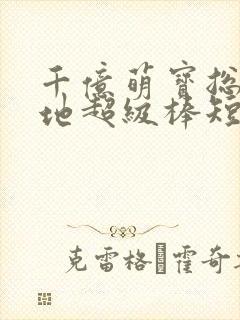 千億萌寶
地超級棒短
克雷格 霍奇